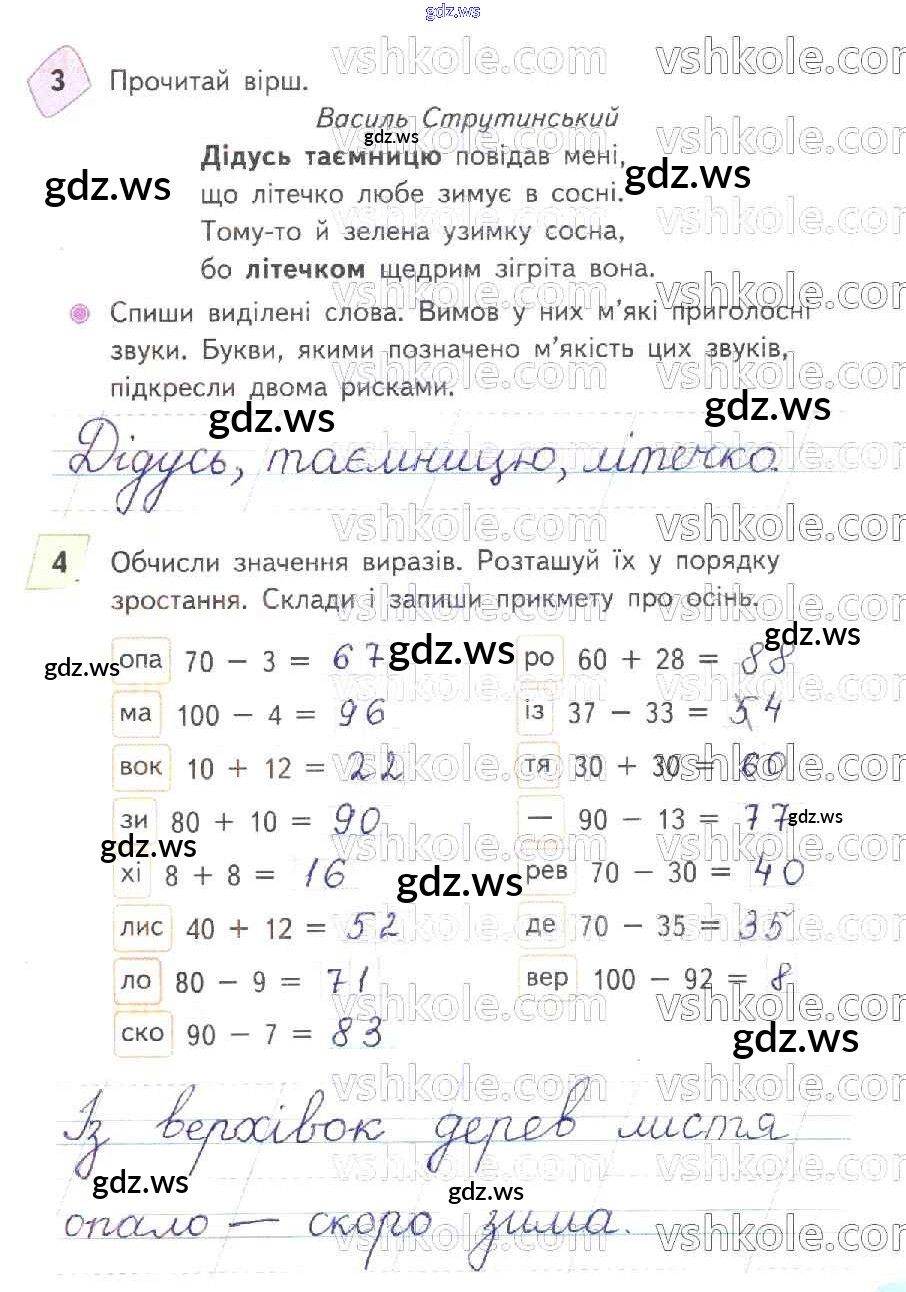 gdz.ws
3 Прочитай вірш.
Василь Струтинський
Дідусь таємницю повідав мені,
що літечко любе зимує в сосні.
Тому-то й зелена узимку сосна,
бо літечком щедрим зігріта вона.
Спиши виділені слова. Вимов у них м'які приголосні
звуки. Букви, якими позначено м'якість цих звуків,
підкресли двома рисками.
Дідусь, таємницю, літечко.
4 Обчисли значення виразів. Розташуй їх у порядку
зростання. Склади і запиши прикмету про осінь.
опа 70 − 3 = 67 ро 60 + 28 = 88
ма 100 − 4 = 96 із 37 − 33 = 54
вок 10 + 12 = 22 тя 30 + 30 = 60
зи 80 + 10 = 90 — 90 − 13 = 77
хі 8 + 8 = 16 рев 70 − 30 = 40
лис 40 + 12 = 52 де 70 − 35 = 35
ло 80 − 9 = 71 вер 100 − 92 = 8
ско 90 − 7 = 83
Із верхівок дерев листя
опало — скоро зима.